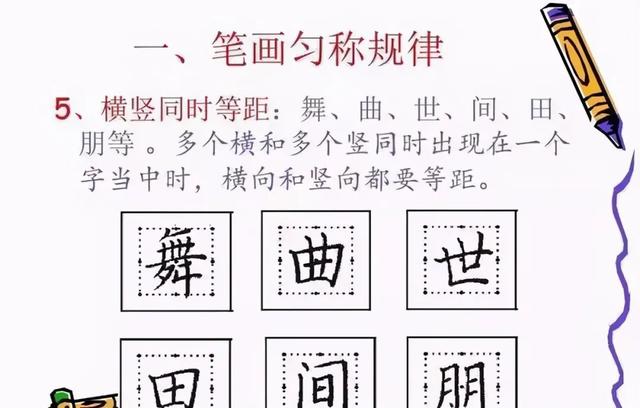 一、笔画匀称规律
5、横竖同时等距：舞、曲、世、间、田、
朋等 。多个横和多个竖同时出现在一个
字当中时，横向和竖向都要等距。
舞 曲 世
田 间 朋